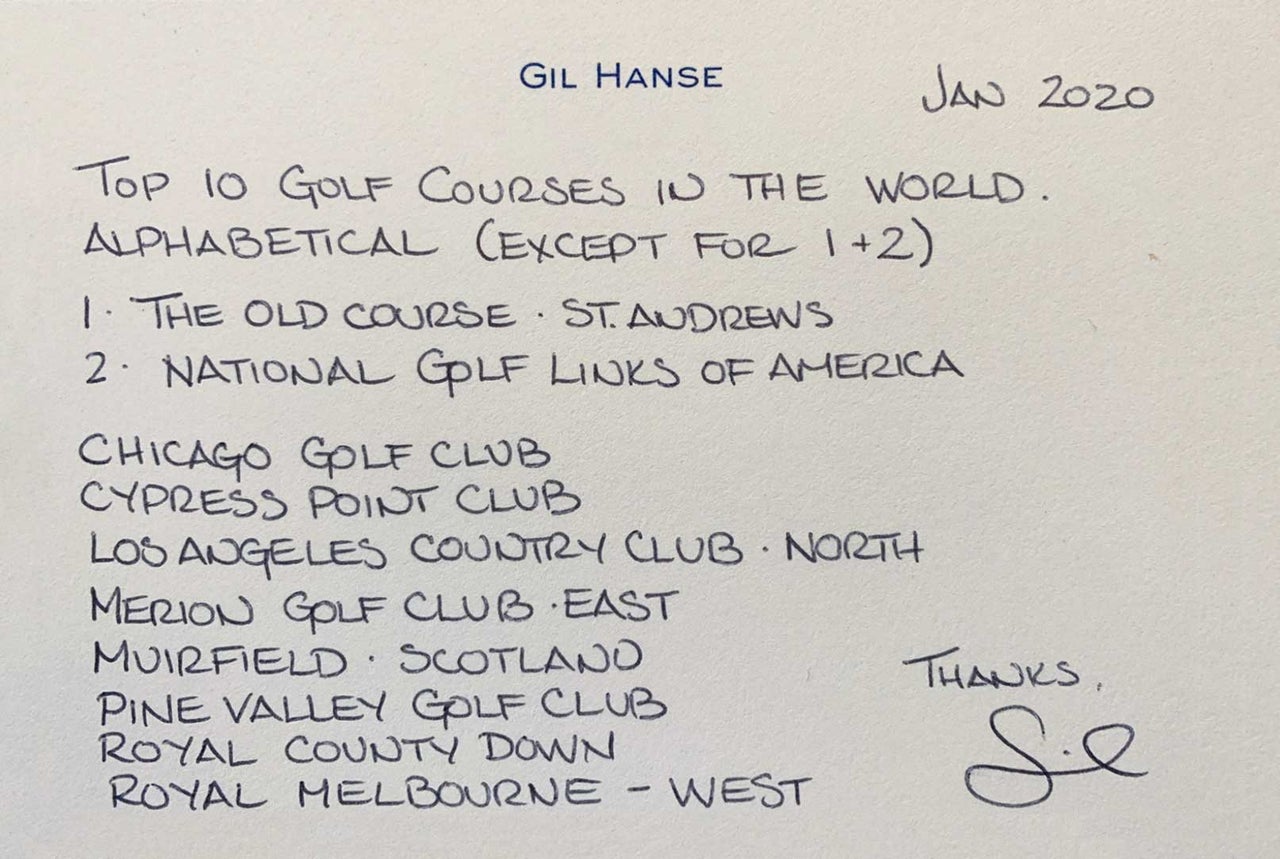 GIL HANSE
JAN 2020
TOP 10 GOLF COURSES IN THE WORLD.
ALPHABETICAL (EXCEPT FOR 1+2)
1. THE OLD COURSE · ST. ANDREWS
2. NATIONAL GOLF LINKS OF AMERICA
CHICAGO GOLF CLUB
CYPRESS POINT CLUB
LOS ANGELES COUNTRY CLUB · NORTH
MERION GOLF CLUB · EAST
MUIRFIELD · SCOTLAND
PINE VALLEY GOLF CLUB
ROYAL COUNTY DOWN
ROYAL MELBOURNE - WEST
THANKS,
Gil